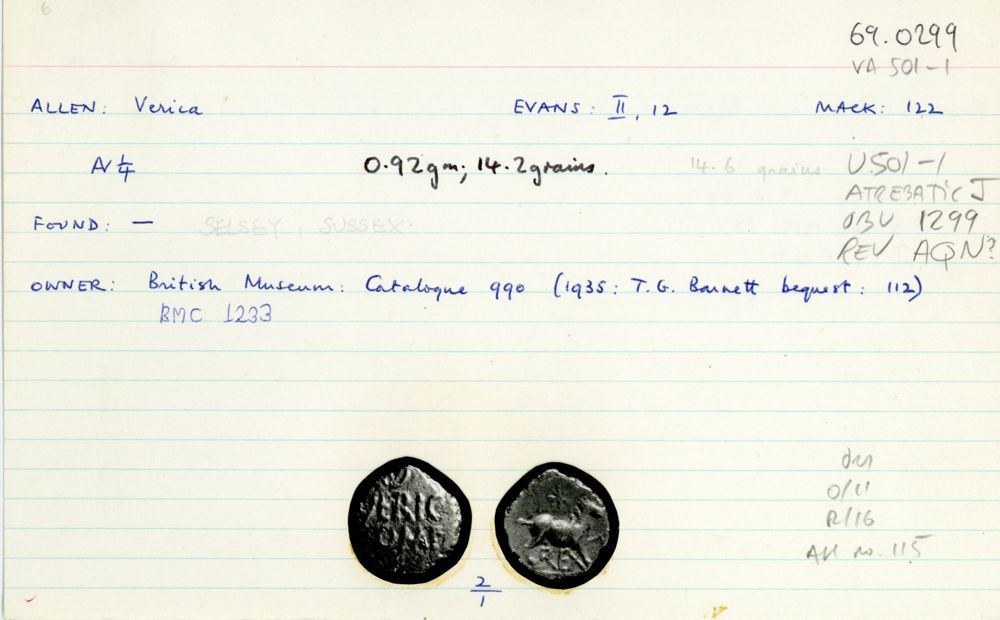 6
69.0299
VA 501-1
ALLEN: Verica EVANS: II, 12 MACK: 122
AV 1/4 0.92gm; 14.2grains. 14.6 grains V.501-1
ATREBATIC J
FOUND: — SELSEY, SUSSEX. OBV 1299
REV AQN?
OWNER: British Museum: Catalogue 990 (1935: T.G. Barnett bequest: 112)
BMC 1233
O/11
R/16
no. 115
ERIC
REX
2/1